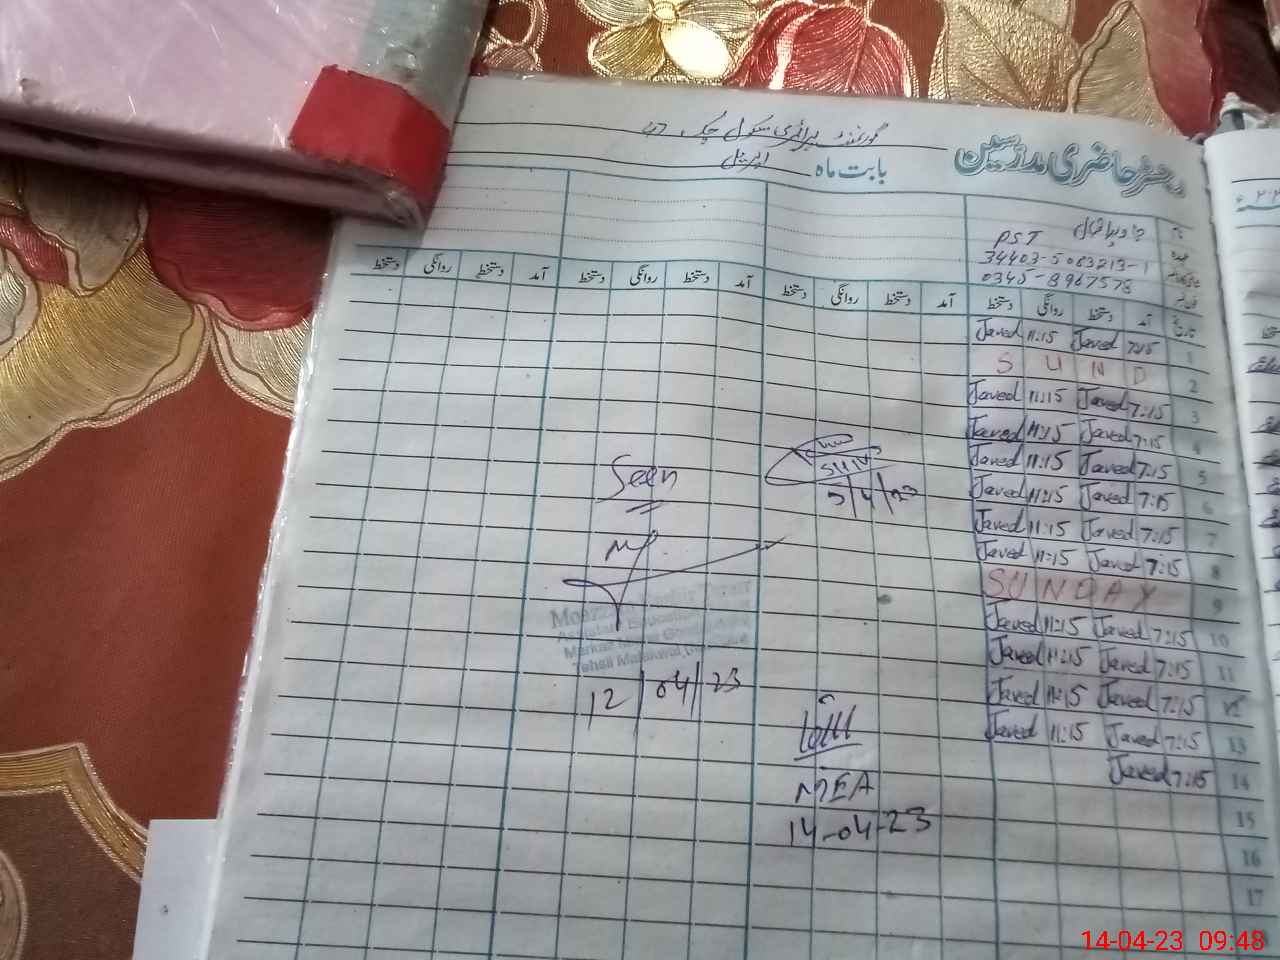 گورنمنٹ پرائمری سکول چک
رجسٹر حاضری مدرسین
بابت ماہ اپریل
نام جاوید اقبال
عہدہ PST
34403-5083213-1
0345-8967578
تاریخ آمد دستخط روانگی دستخط آمد دستخط روانگی دستخط آمد دستخط روانگی دستخط آمد دستخط روانگی دستخط
1 7:15 Javed 11:15 Javed
2 S U N D
3 7:15 Javed 11:15 Javed
4 7:15 Javed 11:15 Javed
5 7:15 Javed 11:15 Javed
6 7:15 Javed 11:15 Javed
7 7:15 Javed 11:15 Javed
8 7:15 Javed 11:15 Javed
9 SUNDAY
10 7:15 Javed 11:15 Javed
11 7:15 Javed 11:15 Javed
12 7:15 Javed 11:15 Javed
13 7:15 Javed 11:15 Javed
14 7:15 Javed
15
16
17
5/4/23
Seen
Assistant Education
Markaz
Tehsil Malakwal
12/04/23
MEA
14-04-23
14-04-23 09:48